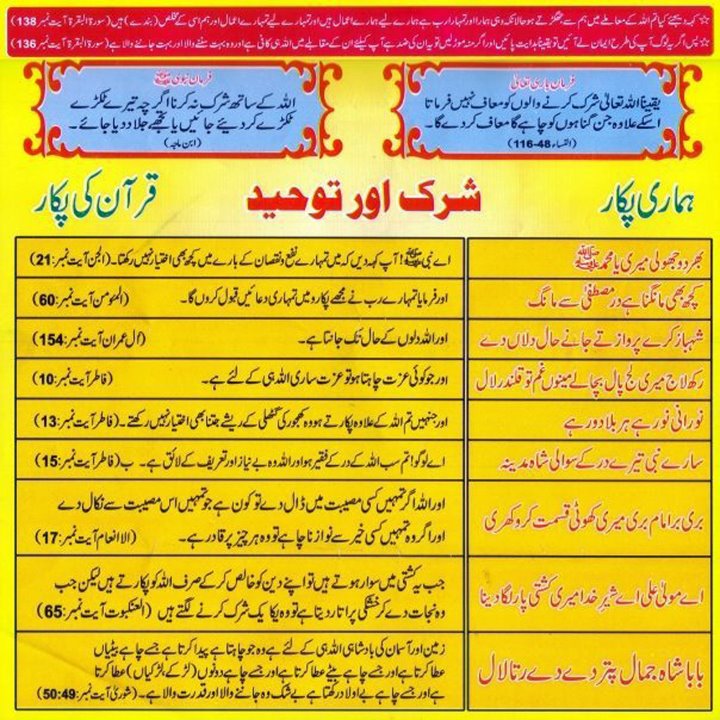 ☆ کہہ دیجئے کیا تم اللہ کے معاملے میں ہم سے جھگڑتے ہو حالانکہ وہی ہمارا اور تمہارا رب ہے ہمارے لیے ہمارے اعمال ہیں اور تمہارے لیے تمہارے اعمال اور ہم اسی کے مخلص (بندے) ہیں (سورۃ البقرۃ آیت نمبر 138)
☆ پس اگر یہ لوگ آپ کی طرح ایمان لے آئیں تو یقیناً ہدایت پائیں اور اگر منہ موڑ لیں تو یہ ان کی ضد ہے آپ کیلئے ان کے مقابلے میں اللہ ہی کافی ہے اور وہ بہت سننے والا اور بہت جاننے والا ہے (سورۃ البقرۃ آیت نمبر 136)
فرمان باری تعالیٰ
یقیناً اللہ تعالیٰ شرک کرنے والوں کو معاف نہیں فرماتا
اسکے علاوہ جن گناہوں کو چاہے گا معاف کر دے گا۔
(النساء 48-116)
فرمان نبوی ﷺ
اللہ کے ساتھ شرک نہ کرنا اگرچہ تیرے ٹکڑے
ٹکڑے کر دیئے جائیں یا تجھے جلا دیا جائے۔
(ابن ماجہ)
ہماری پکار
شرک اور توحید
قرآن کی پکار
بھر دو جھولی میری یا محمد ﷺ
اے نبی ﷺ! آپ کہہ دیں کہ میں تمہارے نفع و نقصان کے بارے میں کچھ بھی اختیار نہیں رکھتا۔ (الجن آیت نمبر: 21)
کچھ بھی مانگنا ہے در مصطفیٰ سے مانگ
اور فرمایا تمہارے رب نے مجھے پکارو میں تمہاری دعائیں قبول کروں گا۔ (المؤمن آیت نمبر: 60)
شہباز کرے پرواز تے جانے حال دلاں دے
اور اللہ دلوں کے حال تک جانتا ہے۔ (آل عمران آیت نمبر: 154)
رکھ لاج میری لج پال بچا لے مینوں غم تو قلندر لال
اور جو کوئی عزت چاہتا ہو تو عزت ساری اللہ ہی کے لئے ہے۔ (فاطر آیت نمبر: 10)
نورانی نور ہے ہر بلا دور ہے
اور جنہیں تم اللہ کے علاوہ پکارتے ہو وہ کھجور کی گٹھلی کے ریشے جتنا بھی اختیار نہیں رکھتے۔ (فاطر آیت نمبر: 13)
سارے نبی تیرے در کے سوالی شاہ مدینہ
اے لوگو! تم سب اللہ کے در کے فقیر ہو اور اللہ وہ بے نیاز اور تعریف کے لائق ہے۔ ب (فاطر آیت نمبر: 15)
بری برا امام بری میری کھوٹی قسمت کرو کھری
اور اللہ اگر تمہیں کسی مصیبت میں ڈال دے تو کون ہے جو تمہیں اس مصیبت سے نکال دے
اور اگر وہ تمہیں کسی خیر سے نوازنا چاہے تو وہ ہر چیز پر قادر ہے۔ (الانعام آیت نمبر: 17)
اے مولیٰ علی اے شیر خدا میری کشتی پار لگا دینا
جب یہ کشتی میں سوار ہوتے ہیں تو اپنے دین کو خالص کر کے صرف اللہ کو پکارتے ہیں لیکن جب
وہ نجات دے کر خشکی پر اتار دیتا ہے تو وہ یکایک شرک کرنے لگتے ہیں (العنکبوت آیت نمبر: 65)
بابا شاہ جمال پتر دے دے رتا لال
زمین اور آسمان کی بادشاہی اللہ ہی کے لئے ہے وہ جو چاہتا ہے پیدا کرتا ہے جسے چاہے بیٹیاں
عطا کرتا ہے اور جسے چاہے بیٹے عطا کرتا ہے اور جسے چاہے دونوں (لڑکے، لڑکیاں) عطا کرتا
ہے اور جسے چاہے بے اولاد رکھتا ہے بے شک وہ جاننے والا اور قدرت والا ہے۔ (شوریٰ آیت نمبر: 50:49)